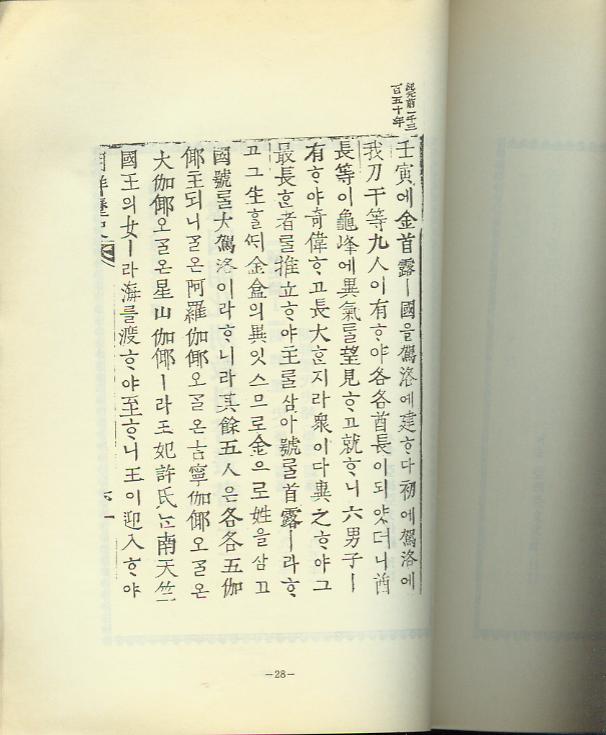 紀元前一千三
百五十年
壬寅에金首露ㅣ國을駕洛에建ᄒᆞ다初에駕洛에
我刀干等九人이有ᄒᆞ야各各酋長이되얏더니酋
長等이龜峰에異氣ᄅᆞᆯ望見ᄒᆞ고就ᄒᆞ니六男子ㅣ
有ᄒᆞ야奇偉ᄒᆞ고長大ᄒᆞᆫ지라衆이다異之ᄒᆞ야그
最長ᄒᆞᆫ者ᄅᆞᆯ推立ᄒᆞ야主ᄅᆞᆯ삼아號ᄅᆞᆯ首露ㅣ라ᄒᆞ
고그生ᄒᆞᆯᄯᅢ金盒의異잇스므로金으로姓을삼고
國號ᄅᆞᆯ大駕洛이라ᄒᆞ니라其餘五人은各各五伽
倻王되니ᄀᆞᆯ온阿羅伽倻오ᄀᆞᆯ온古寧伽倻오ᄀᆞᆯ온
大伽倻오ᄀᆞᆯ온星山伽倻ㅣ라王妃許氏ᄂᆞᆫ南天竺
國王의女ㅣ라海를渡ᄒᆞ야至ᄒᆞ니王이迎入ᄒᆞ야
－28－